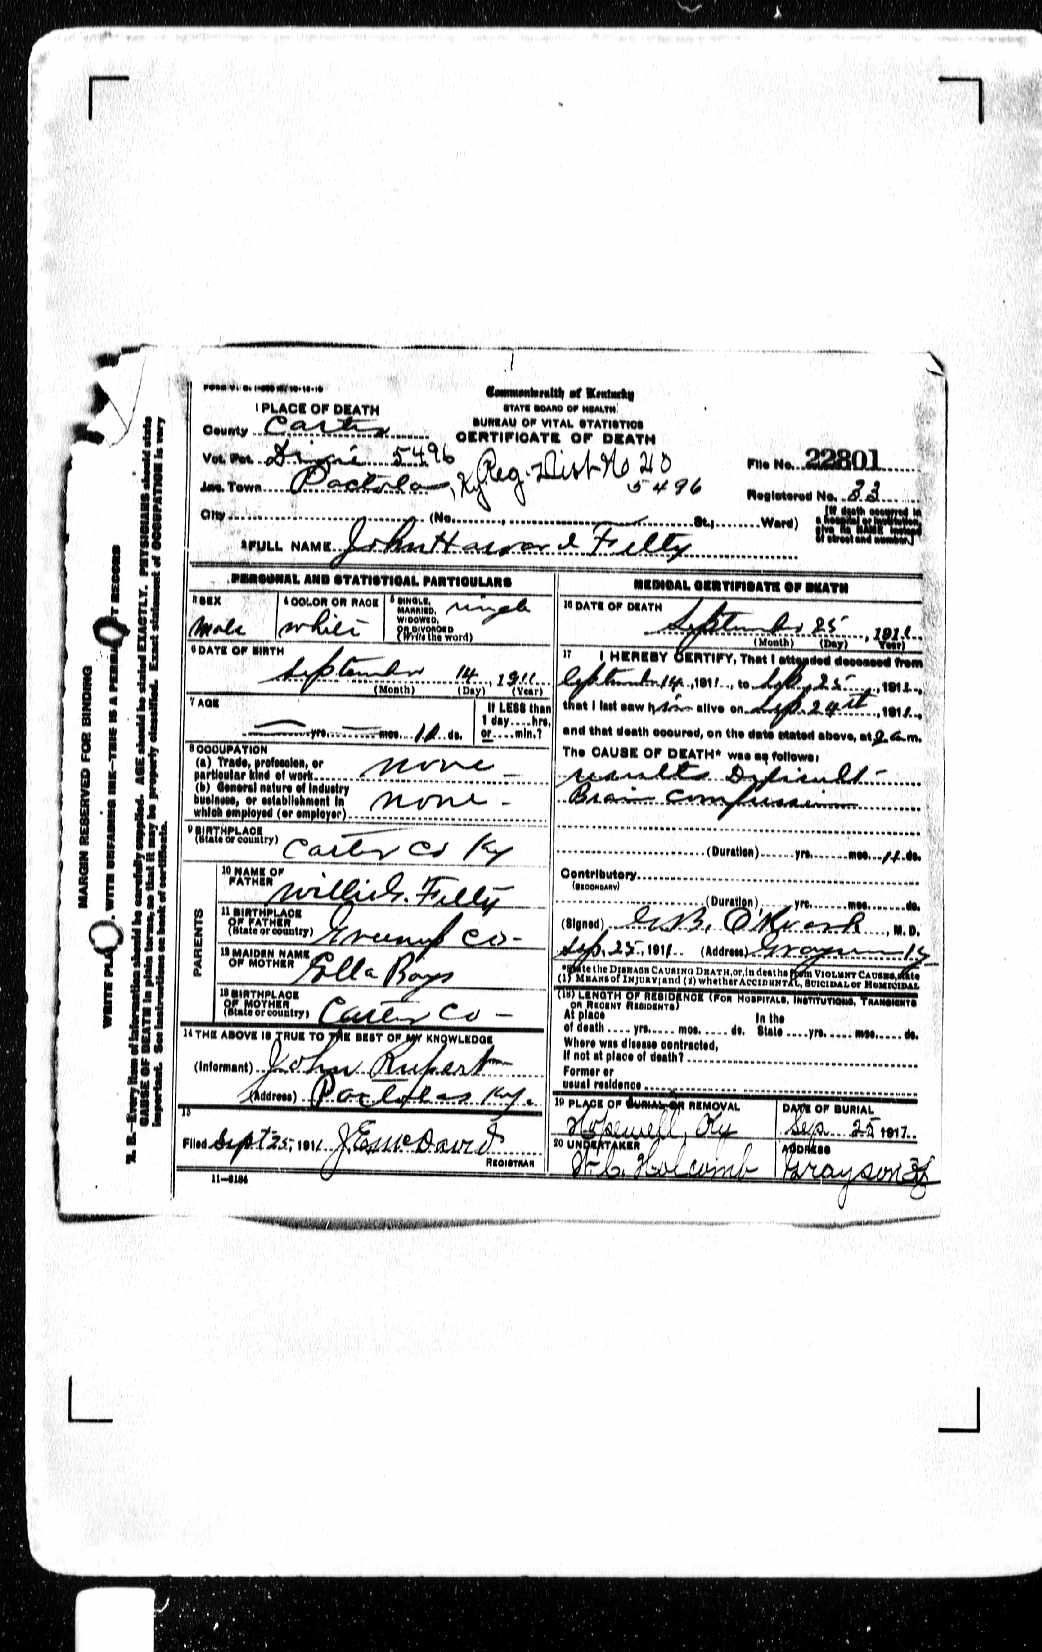 Commonwealth of Kentucky
STATE BOARD OF HEALTH
BUREAU OF VITAL STATISTICS
CERTIFICATE OF DEATH
1 PLACE OF DEATH
County Carter
Vot. Pct. 5496
Inc. Town Pactolas, Ky
Reg. Dist No 20
5496
File No. 22801
Registered No. 33
[If death occurred in
a hospital or institution,
give its NAME instead
of street and number.]
City (No. , St.; Ward)
2 FULL NAME John Harvard Felty
PERSONAL AND STATISTICAL PARTICULARS
3 SEX
Male
4 COLOR OR RACE
White
5 SINGLE,
MARRIED,
WIDOWED,
OR DIVORCED
(Write the word)
single
6 DATE OF BIRTH
September 14, 1911
(Month) (Day) (Year)
7 AGE
yrs. mos. 11 ds.
If LESS than
1 day....hrs.
or....min.?
8 OCCUPATION
(a) Trade, profession, or
particular kind of work none
(b) General nature of industry
business, or establishment in
which employed (or employer) none
9 BIRTHPLACE
(State or country) Carter Co Ky
PARENTS
10 NAME OF
FATHER Willie G. Felty
11 BIRTHPLACE
OF FATHER
(State or country) Greenup Co
12 MAIDEN NAME
OF MOTHER Ella Bays
13 BIRTHPLACE
OF MOTHER
(State or country) Carter Co
14 THE ABOVE IS TRUE TO THE BEST OF MY KNOWLEDGE
(Informant) John Rupert
(Address) Pactolas Ky.
15
Filed Sept 25, 1911 J E McDavid
REGISTRAR
11—3184
MEDICAL CERTIFICATE OF DEATH
16 DATE OF DEATH
September 25, 1911
(Month) (Day) (Year)
17 I HEREBY CERTIFY, That I attended deceased from
September 14, 1911, to Sep. 25, 1911,
that I last saw him alive on Sep. 24th, 1911,
and that death occured, on the date stated above, at 2 a.m.
The CAUSE OF DEATH* was as follows:
results Difficult
Brain Compression
(Duration) yrs. mos. 11 ds.
Contributory
(SECONDARY)
(Duration) yrs. mos. ds.
(Signed) G. B. O'Roark M.D.
Sep. 25, 1911 (Address) Grayson Ky
*State the DISEASE CAUSING DEATH, or, in deaths from VIOLENT CAUSES, state
(1) MEANS OF INJURY; and (2) whether ACCIDENTAL, SUICIDAL or HOMICIDAL
(18) LENGTH OF RESIDENCE (FOR HOSPITALS, INSTITUTIONS, TRANSIENTS
OR RECENT RESIDENTS)
At place In the
of death .... yrs. .... mos. .... ds. State .... yrs. .... mos. .... ds.
Where was disease contracted,
If not at place of death?
Former or
usual residence
19 PLACE OF BURIAL OR REMOVAL
Hopewell, Ky
DATE OF BURIAL
Sep 25 1911
20 UNDERTAKER
Holcomb
ADDRESS
Grayson
MARGIN RESERVED FOR BINDING
WRITE PLAINLY, WITH UNFADING INK—THIS IS A PERMANENT RECORD
N. B.—Every item of information should be carefully supplied. AGE should be stated EXACTLY. PHYSICIANS should state
CAUSE OF DEATH in plain terms, so that it may be properly classified. Exact statement of OCCUPATION is very
important. See instructions on back of certificate.